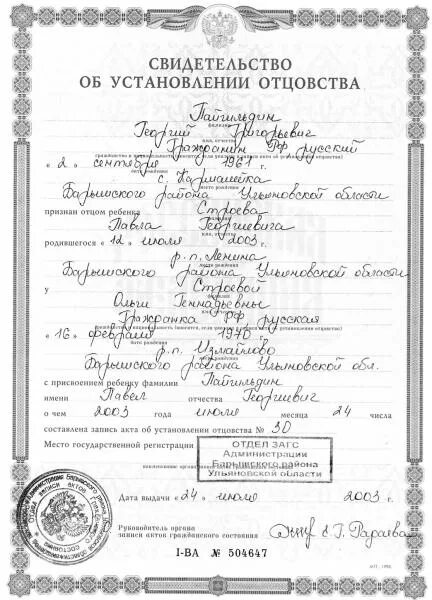 СВИДЕТЕЛЬСТВО
ОБ УСТАНОВЛЕНИИ ОТЦОВСТВА
Пайгильдин
фамилия
Георгий Григорьевич
имя, отчество
Гражданин РФ русский
гражданство и национальность (вносится, если указана в записи акта об установлении отцовства)
« 2 » сентября 1961 г.
место рождения
Барышского района Ульяновской области
признан отцом ребенка Строева
фамилия
Павла Георгиевича
имя, отчество
родившегося « 12 » июля 2003 г.
р.п. Ленина
место рождения
Барышского района Ульяновской области
у Строевой
фамилия
Ольги Геннадьевны
имя, отчество
Гражданка РФ русская
« 16 » февраля 1970 г.
дата рождения
р.п. Измайлово
место рождения
Барышского района Ульяновской обл.
с присвоением ребенку фамилии Пайгильдин
имени Павел отчества Георгиевич
о чем 2003 года июля месяца 24 числа
составлена запись акта об установлении отцовства № 30
Место государственной регистрации ОТДЕЛ ЗАГС
Администрации
Барышского района
Ульяновской области
Дата выдачи « 24 » июля 2003 г.
Руководитель органа
записи актов гражданского состояния
I-ВА № 504647